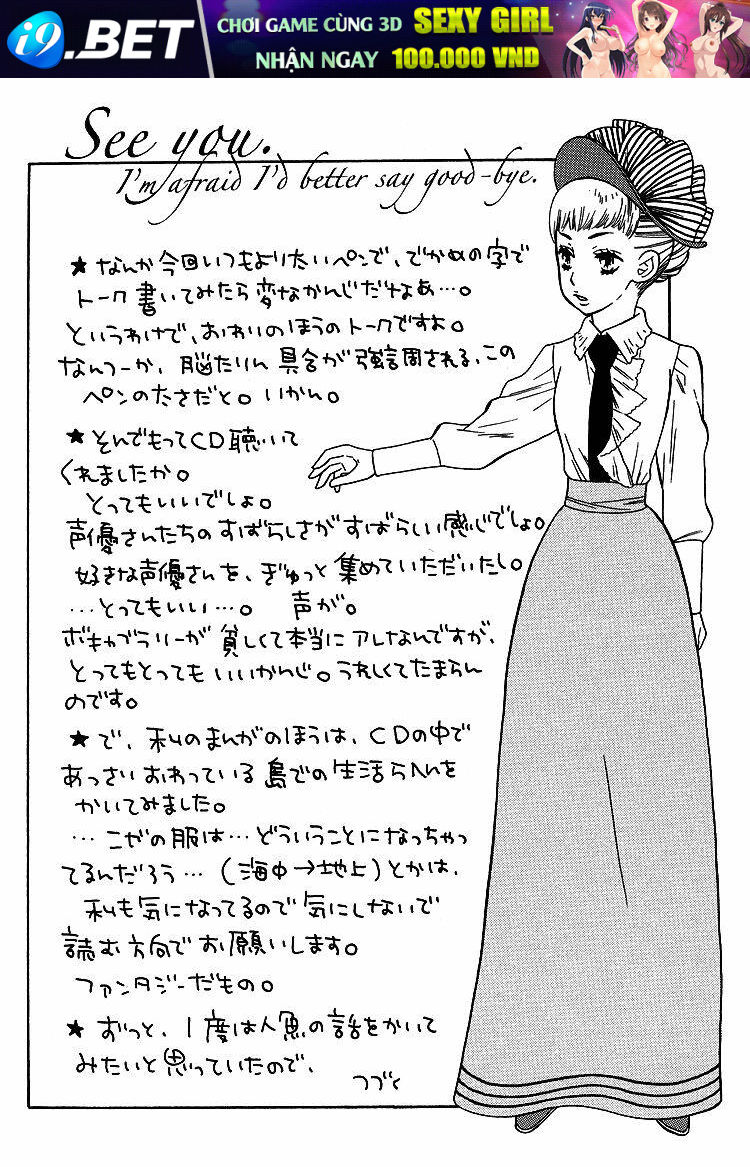 i9.BET
CHƠI GAME CÙNG 3D SEXY GIRL
NHẬN NGAY 100.000 VND
See you.
I'm afraid I'd better say good-bye.
★なんか今回いつもより太いペンで、でかめの字で
トーク書いてみたら変なかんじだなぁ…。
というわけで、おわりのほうのトークですよ。
なんつーか、脳たりん具合が強調される、この
ペンの太さだと。いかん。
★そんでもってCD聴いて
くれましたか。
とってもいいでしょ。
声優さんたちのすばらしさがすばらしい感じでしょ。
好きな声優さんを、ぎゅっと集めていただいたし。
…とってもいい…。 声が。
ボキャブラリーが貧しくて本当にアレなんですが、
とってもとってもいいかんじ。うれしくてたまらん
のです。
★で、私のまんがのほうは、CDの中で
あっさりおわっている島での生活らへんを
かいてみました。
…こゼの服は…どういうことになっちゃっ
てるんだろう…(海中→地上)とかは、
私も気になってるので気にしないで
読む方向でお願いします。
ファンタジーだもの。
★ずっと、1度は人魚の話をかいて
みたいと思っていたので、
つづく